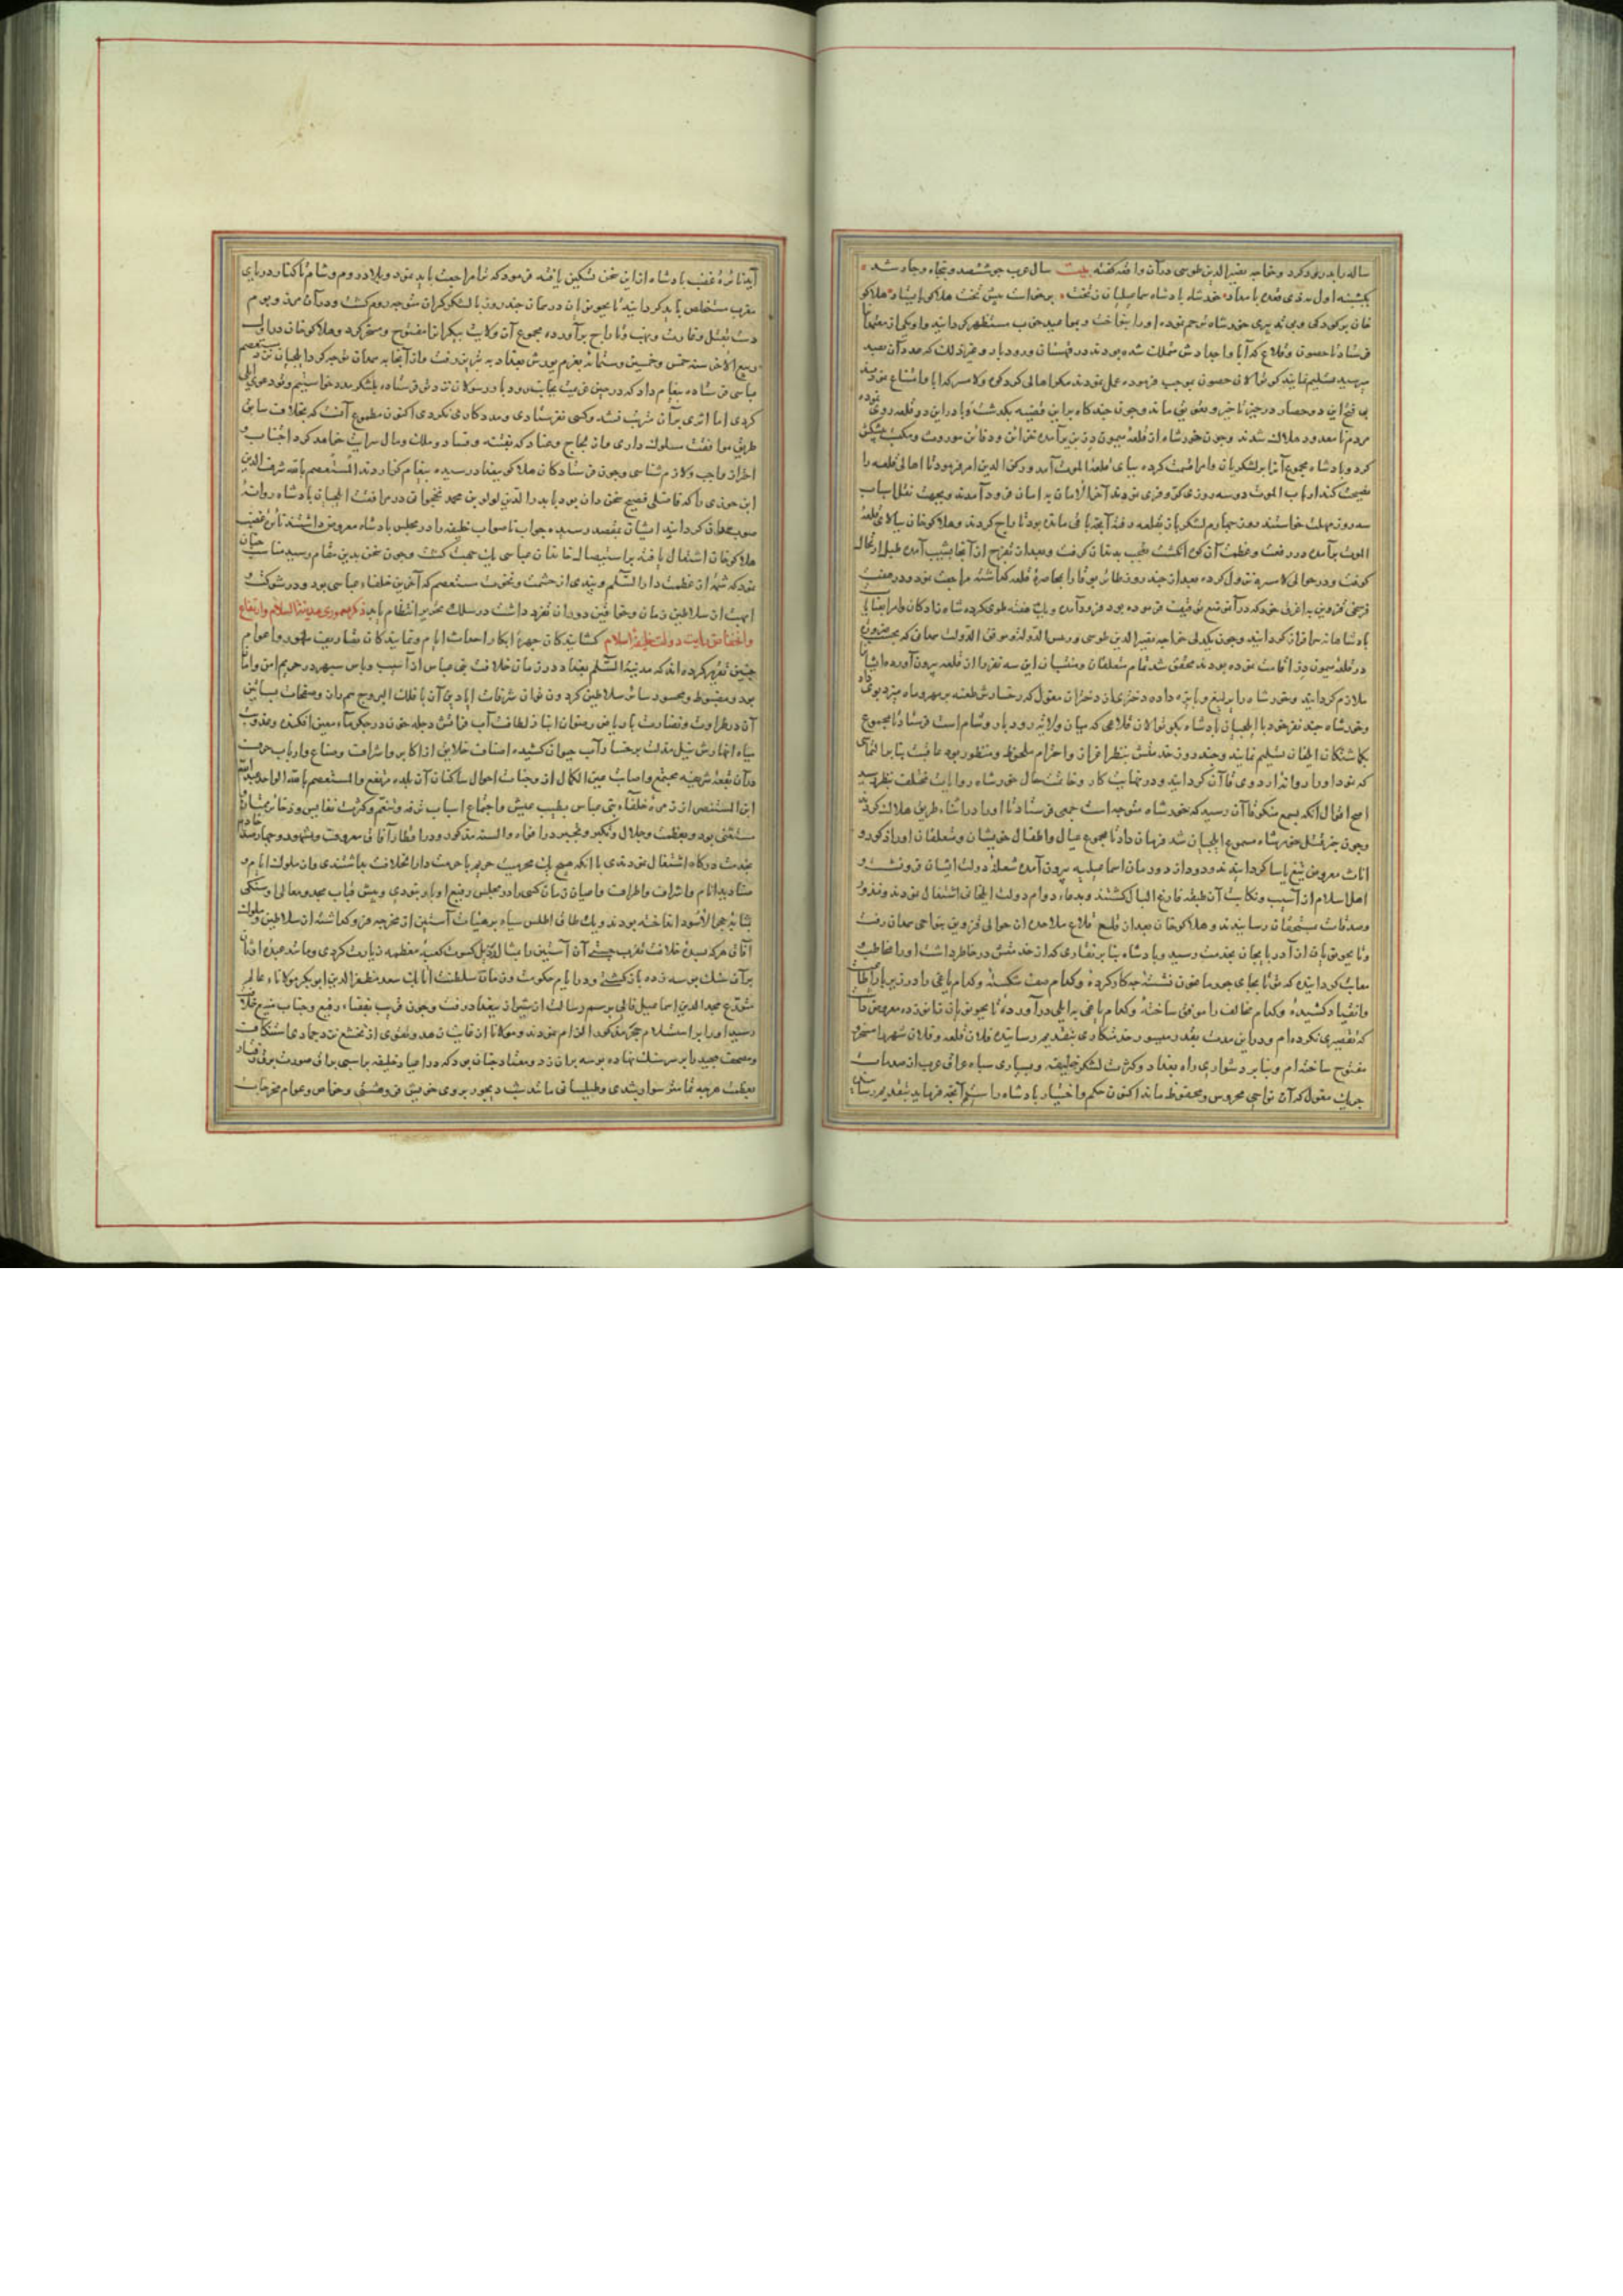 ساله را بدرود کرد و خواجه نصیر الدین طوسی در آن واقعه گفته بیت سال عرب چو ششصد و پنجاه و چار شد
یکشنبه اول مه ذی قعده بامداد خورشاه پادشاه سماعیلیان ز تخت برخواست پیش تخت هلاکو بایستاد هلاکو
خان بر کودکی و بی تدبیری خورشاه ترحم نموده او را بنواخت
فرستاد تا حصون و قلاع که آبا و اجدادش متملک شده بودند در قهستان و رودبار
بسپرند تسلیم نمایند کوتوالان حصون بموجب فرموده عمل نمودند مگر اهالی گردکوه و لامسر که ابا و امتناع نمودند
فتح این دو حصار در حیز تاخیر و تعویق ماند و چون چندگاه برین قضیه بگذشت وبا در این دو قلعه روی نموده
مردم نامعدود هلاک شدند و چون خورشاه از قلعه میمون دز بزیر آمده خزاین و دفاین موروث و مکتسب پیشکش
کرد و پادشاه مجموع آنرا بر لشکریان و امرا قسمت کرده بپای قلعه الموت آمد و رکن الدین امر فرمود تا اهالی قلعه را
نصیحت کند ارباب الموت دو سه روزی کر و فری نمودند آخر الامان به امان فرود آمدند و بجهت نقل اسباب
سه روز مهلت خواستند روز چهارم لشکریان بقلعه رفته آنچه باقی مانده بود تاراج کردند و هلاکو خان ببالای قلعه
الموت برآمده در رفعت و عظمت آن کوه انگشت تعجب بدندان گرفت و بعد از تفرج از آنجا بشیب آمده طبل ارتحال
کوفت و در حوالی لامسر نزول کرده بعد از چند روز طایر بوقا را بمحاصره قلعه گذاشته مراجعت نمود و در
پادشاهانه سرافراز گردانید و چون یکدلی خواجه نصیر الدین طوسی و رییس الدوله و موفق الدوله همدانی که بحسب ضرورت
در قلعه میمون دز اقامت نموده بودند محقق شد تمام متعلقان و منتسبان این سه نفر را از قلعه بیرون آورده ایشانرا
ملازم گردانید و خورشاه را یرلیغ و پایزه داده دختری از دختران مغول که رخسارش طعنه بر مهر و ماه میزد بوی داد
و خورشاه چند نفر خود با ایلچیان پادشاه بکوتوالان قلاعی که میان ولایت رودبار و شام است فرستاد تا مجموع
بگماشتگان ایلخان تسلیم نمایند و چند روز خدمتش بنظر اعزاز و احترام ملحوظ و منظور بود عاقبت بنابر التماسی
که نمود او را روانه اردوی قاآن گردانید و در نهایت کار و خاتمت حال خورشاه روایات مختلف بنظر رسید
اصح اقوال آنکه بسمع منکوقاآن رسید که خورشاه متوجه است جمعی فرستاد تا او را در اثناء طریق هلاک کردند
و چون خبر قتل خورشاه مسموع ایلخان شد فرمان داد تا مجموع عیال و اطفال خویشان و متعلقان او را از ذکور و
اناث معروض تیغ یاسا گردانیدند و دود از دودمان اسماعیلیه بیرون آمده شعله دولت ایشان فرو نشست و
اهل اسلام از آسیب و نکایت آن طبقه فارغ البال گشتند و بدعاء دوام دولت ایلخانی اشتغال نمودند و نذور
و صدقات بمستحقان رسانیدند و هلاکو خان بعد از قلع قلاع ملاحده از حوالی قزوین بنواحی همدان رفت
و تایجو نویان از آذربایجان بخدمت رسید و پادشاه بنابر نقاری که از خدمتش در خاطر داشت او را مخاطب
معاتب گردانید که تو تا بجای جرماغون نشسته چه کار کرده و کدام صف شکسته و کدام یاغی را در
و انقیاد کشیده و کدام مخالف را موافق ساخته و کدام یاغی به ایلی درآورده تایجو نویان زانو زده معروض داشت
که تقصیری نکرده ام و در این مدت بقدر میسور خدمتکاری بتقدیم رسانیده فلان قلعه و فلان شهر را مسخر
مفتوح ساخته ام و بنابر دشواری راه بغداد و کثرت لشکر خلیفه و بسیاری سپاه عراق عرب از صدمات
جیش مغول که آن نواحی محروس و محفوظ مانده اکنون حکم و اختیار پادشاه راست آنچه فرماید بتقدیم رسانم
نائره غضب پادشاه ازین سخن تسکین یافته فرمود که ترا مراجعت باید نمود و بلاد روم و شام تا کنار دریای
مغرب مستخلص باید گردانید تایجو نویان در همان چند روز با لشکر گران متوجه روم گشت و در آن مرز و بوم
دست بقتل و غارت و نهب و تاراج برآورده مجموع آن ولایت بیکران را مفتوح و مسخر کرد و هلاکو خان در اوایل
ربیع الآخر سنه خمس و خمسین و ستمائه بعزم یورش بغداد به تبریز رفت و از آنجا به همدان توجه کرد و ایلچیان نزد مستعصم
عباسی فرستاده پیغام داد که در حین عزیمت بجانب رودبار رسولان نزد تو فرستاده بلشکر مدد خواستیم و تو دعوی ایلی
کردی اما اثری بر آن مترتب نشد و کسی نفرستادی و مددکاری نکردی اکنون مطموع آنست که بخلاف سابق
طریق موافقت سلوک داری و از لجاج و عناد که بفتنه و فساد و ملک و مال سرایت خواهد کرد اجتناب و
احتراز واجب و لازم شناسی و چون فرستادگان هلاکو ببغداد رسیده پیغام گذاردند المستعصم بالله شرف الدین
ابن جوزی را که فاضلی فصیح سخن دان بود با بدر الدین لولو بن محمد نخجوانی در مرافقت ایلچیان پادشاه روانه
صوب همدان گردانید ایشان بمقصد رسیده جواب ناصواب خلیفه را در مجلس پادشاه معروض داشتند نایره غضب
هلاکو خان اشتعال یافته بر استیصال خاندان عباسی یک جهت گشت و چون سخن بدین مقام رسید مناسب چنان
نمود که شمه از عظمت دار السلام و بندی از حشمت و نخوت مستعصم که آخرین خلفاء عباسی بود و در شوکت و
ابهت از سلاطین زمان و خواقین دوران تفرد داشت در سلک تحریر انتظام یابد ذکر معموری مدینه السلام و ارتفاع
و انخفاض رایت دولت خلیفه اسلام گشایندگان چهره ابکار احداث ایام و نمایندگان تصاریف شهور و اعوام
چنین تقریر کرده اند که مدینه السلام بغداد در زمان خلافت بنی عباس از آسیب و باس سپهر در حریم امن و امان
بود و مغبوط و محسود سایر سلاطین
آن در طراوت و نضارت با ریاض رضوان انباز لطافت آب فراتش دجله خون در جگر ماء معین افکنده و عذوبت
میاه انهارش نیل مذلت بر رخسار آب حیوان کشیده اصناف خلایق از اکابر و اشراف و صناع و ارباب حرف
در آن بقعه شریفه مجتمع و اصابت عین الکمال از وجنات احوال ساکنان آن بلده مرتفع و المستعصم بالله ابو احمد عبدالله
ابن المستنصر از زمره خلفاء بنی عباس بطیب عیش و اجتماع اسباب ترفه و تنعم و کثرت نفایس و ذخایر ممتاز و
مستثنی بود و بعظمت و جلال و تکبر و تجبر در افواه و السنه مذکور و در اقطار آفاق معروف و مشهور و چهار صد خادم
بخدمت درگاه اشتغال نمودندی با آنکه هیچ یک بحرمت حریم با حرمت دار الخلافت نداشتندی و از ملوک ایام و
صنادید انام و اشراف اطراف و اعیان زمان کسی را در مجلس رفیع او بار نبودی و پیش قباب مجد و معالی او سنگی
بمثابه حجر الاسود انداخته بودند و یک طاق اطلس سیاه بر هیئت آستین از غرفه فرو گذاشته از سلاطین و ملوک
آفاق هر که بسده خلافت تقرب جستی آن آستین را بشابه ذیل کسوت کعبه معظمه زیارت کردی و مانند عبده اوثان
بر آن سنگ بوسه زده بازگشتی و در ایام حکومت و زمان سلطنت اتابک سعد مظفر الدین ابوبکر مولانا عالم
متورع مجد الدین اسماعیل فالی برسم رسالت از شیراز ببغداد رفت و چون قریب بفضاء رفیع و جناب منیع خلافت
رسید او را بر استلام حجر مذکور الزام نمودند و مولانا از غایت زهد و تقوی از تخشع نزد جمادی استنکاف
و مصحف مجید را بر سر سنگ نهاده بوسه بران زد و معتاد چنان بود که در اعیاد خلیفه بر اسبی براق صورت برق نهاد
بعظمت هر چه تمامتر سوار شدی و طیلسانی مانند شب دیجور بر روی خویش فرو هشتی و خواص و عوام مخرجات